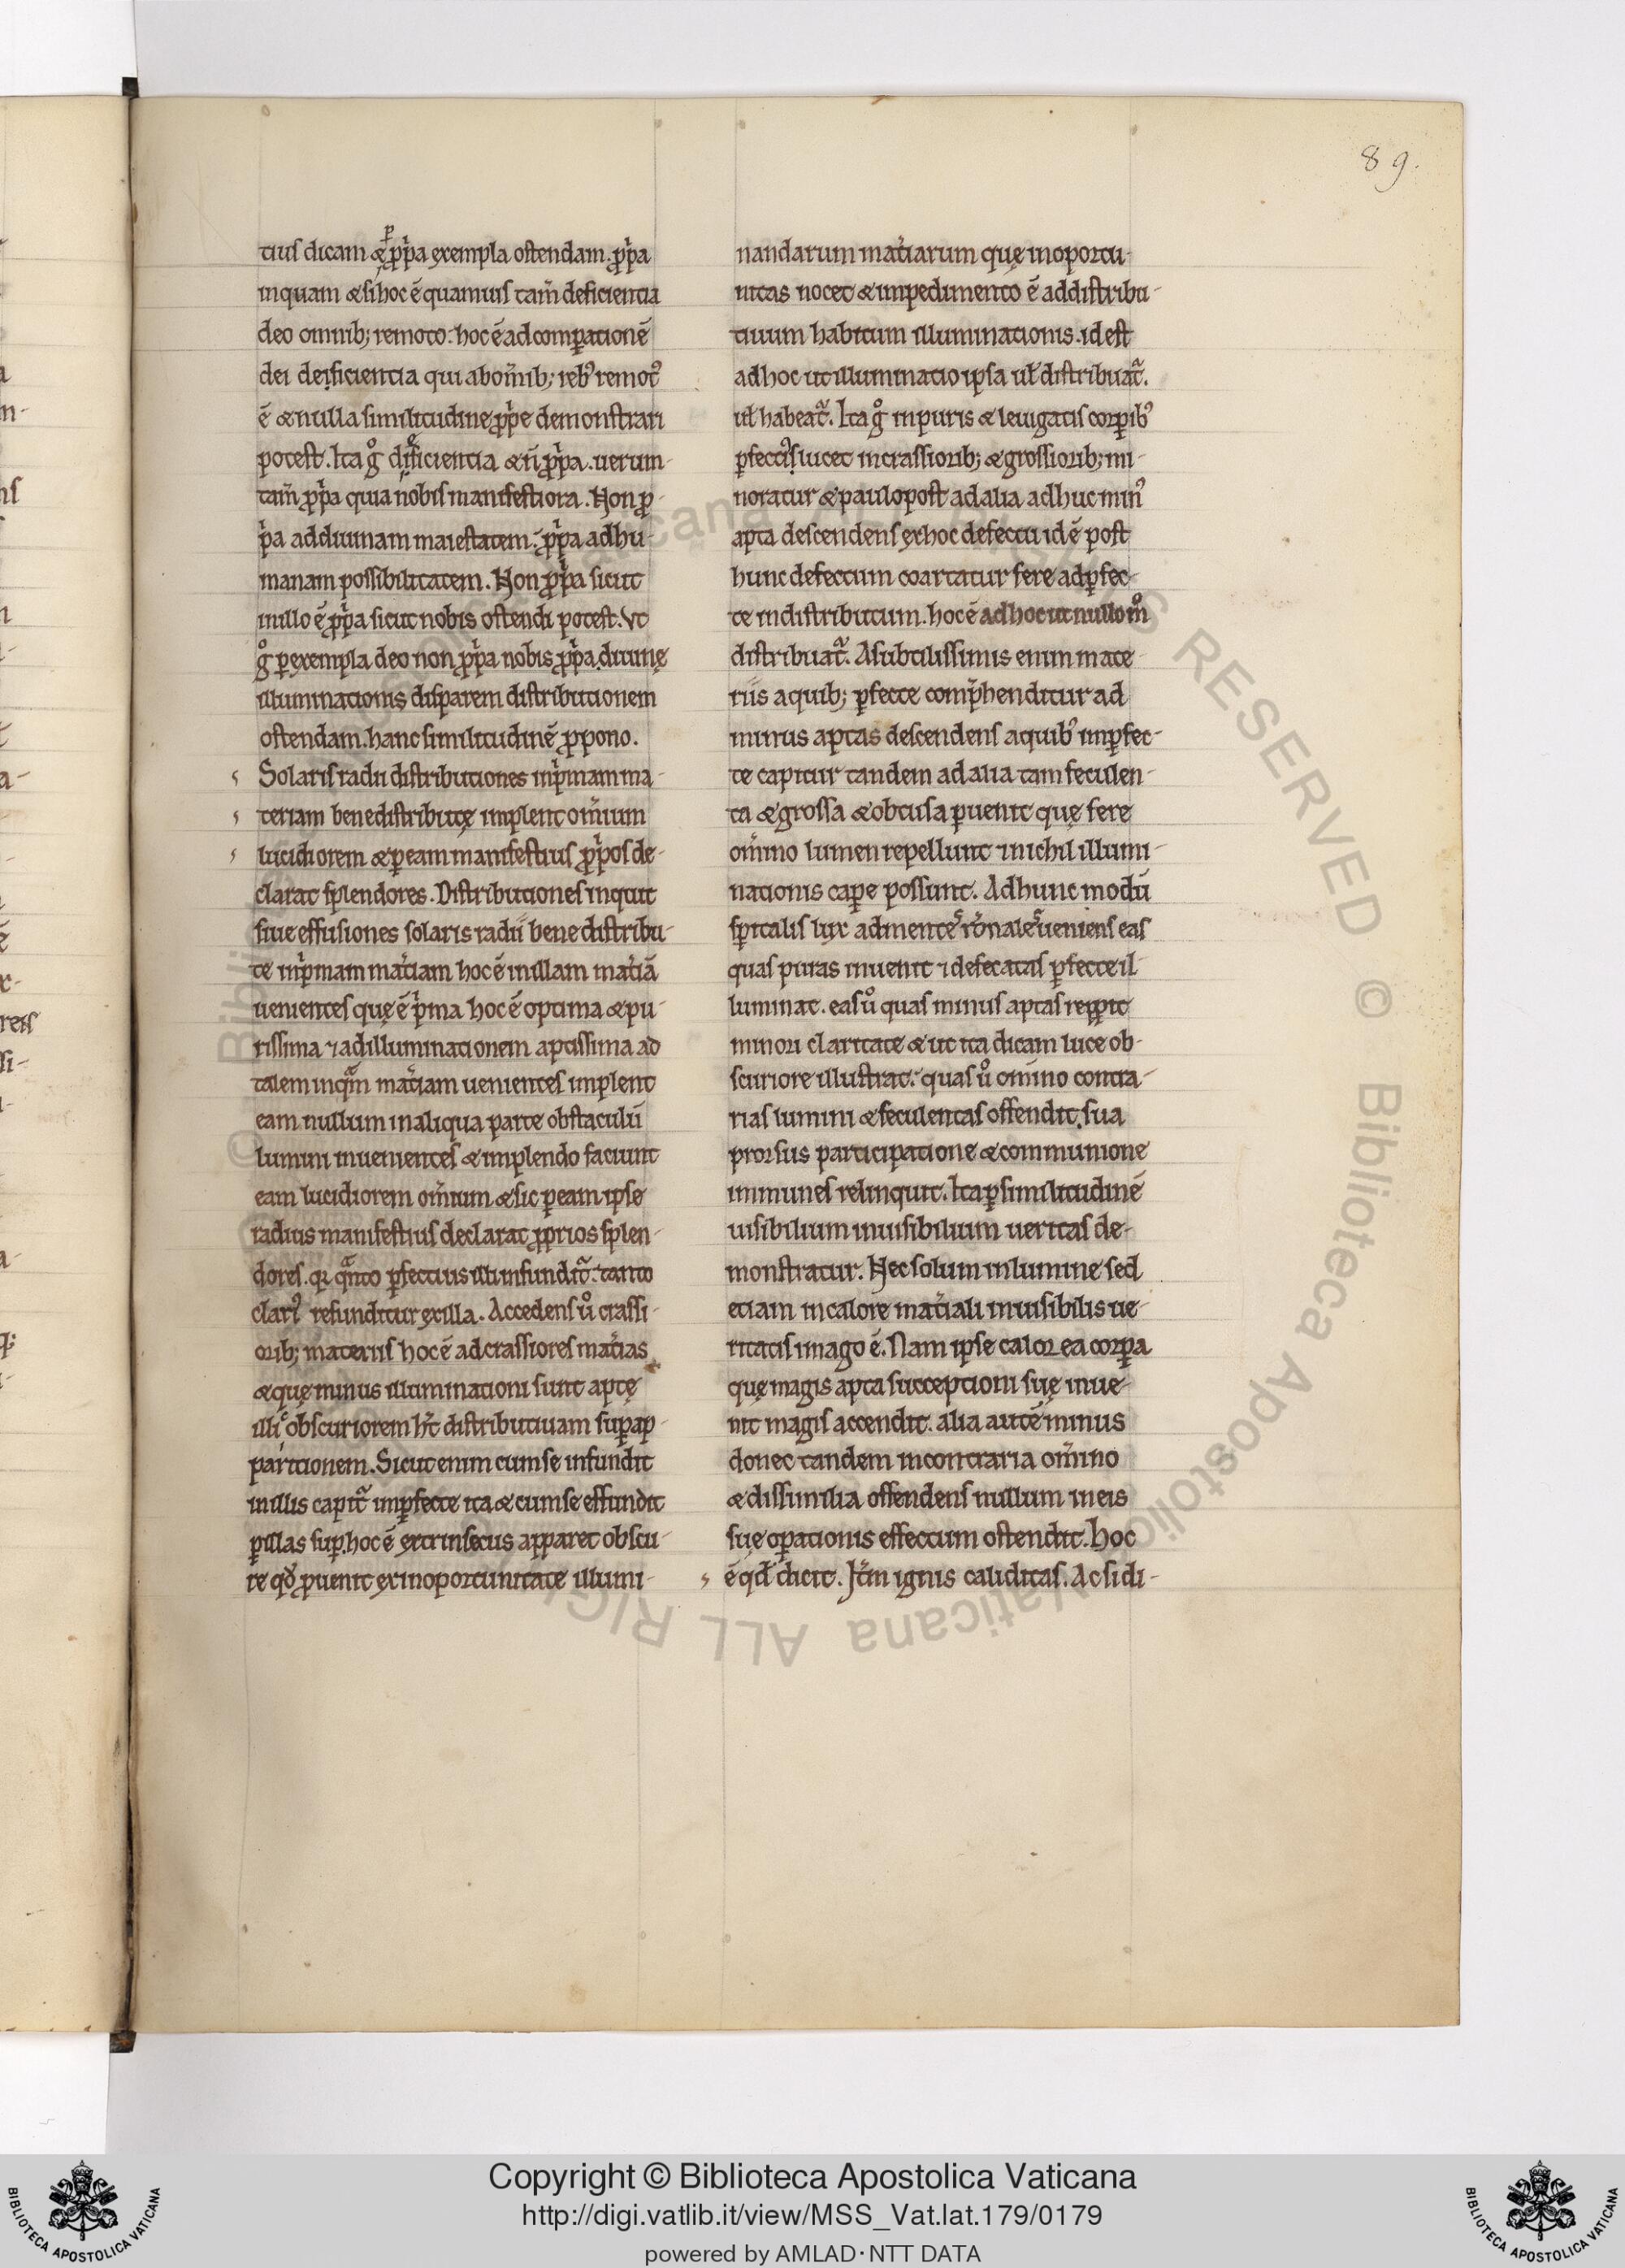 89.
tius dicam & p̱ p̱pͥa exempla ostendam. p̱pͥa
inquam & si hoc ē quamuis tam̄ deficientia
deo omnib; remoto. hoc ē ad comꝑationē
dei deificientia qui ab om̄ib; rebꝰ remotꝰ
ē & nulla similitudine ꝓpͥe demonstrari
potest. Ita gͦ deficientia & n̄ ꝓpͥa. uerum-
tam̄ ꝓpͥa quia nobis manifestiora. Non ꝓ-
pͥa ad diuinam maiestatem. ꝓpͥa ad hu-
manam possibilitatem. Non ꝓpͥa sicut
in illo ē ꝓpͥa sicut nobis ostendi potest. Vt
gͦ ꝑ exempla deo non ꝓpͥa nobis ꝓpͥa diuinę
illuminationis disparem distributionem
ostendam. hanc similitudinē ꝓpono.
Solaris radii distributiones in pͥmam ma-
teriam bene distributę implent om̄ium
lucidiorem & ꝑ eam manifestius ꝓpͥos de-
clarat splendores. Distributiones inquit
siue effusiones solaris radii bene distribu-
te in pͥmam mat̄iam hoc ē in illam mat̄iā
uenientes quę ē pͥma hoc ē optima & pu-
rissima ⁊ ad illuminationem aptissima ad
talem inqͣm mat̄iam uenientes implent
eam nullum in aliqua parte obstaculū
lumini inuenientes & implendo faciunt
eam lucidiorem om̄ium & sic ꝑ eam ipse
radius manifestius declarat ꝓprios splen-
dores. qꝛ qͣnto ꝑfectius illi infundit᷑. tanto
clariꝰ refunditur ex illa. Accedens uͦ crassi-
orib; materiis hoc ē ad crassiores mat̄ias
& quę minus illuminationi sunt aptę
illi obscuriorem ht̄ distributiuam suꝑap-
paritionem. Sicut enim cum se infundit
in illis capit᷑ imꝑfecte ita & cum se effundit
ꝑ illas suꝑ. hoc ē extrinsecus apparet obscu-
re qđ ꝓuenit ex inoportunitate illumi-
nandarum mat̄iarum quę inoportu-
nitas nocet & impedimento ē ad distribu-
tiuum habitum illuminationis. id est
ad hoc ut illuminatio ipsa uł distribuat᷑.
uł habeat᷑. Ita gͦ in puris & leuigatis corꝑibꝰ
ꝑfectiꝰ lucet in crassiorib; & grossiorib; mi-
noratur & paulo post ad alia adhuc minꝰ
apta descendens ex hoc defectu id ē post
hunc defectum coartatur fere ad ꝑfec-
te indistributum. hoc ē ad hoc ut nullo mͦ
distribuat᷑. A subtilissimis enim mate-
riis a quib; ꝑfecte comp̄henditur ad
minus aptas descendens a quibꝰ imꝑfec-
te capitur tandem ad alia tam feculen-
ta & grossa & obtusa ꝑuenit quę fere
om̄ino lumen repellunt ⁊ nichil illumi-
nationis caꝑe possunt. Ad hunc modū
spͥtalis lux ad mentes rōnales ueniens eas
quas puras inuenit ⁊ defecatas ꝑfecte il-
luminat. eas uͦ quas minus aptas repꝑit
minori claritate & ut ita dicam luce ob-
scuriore illustrat. quas uͦ om̄ino contra-
rias lumini & feculentas offendit, sua
prorsus participatione & communione
immunes relinquit. Ita ꝑ similitudinē
uisibilium inuisibilium ueritas de-
monstratur. Nec solum in lumine sed
etiam in calore mat̄iali inuisibilis ue-
ritatis imago ē. Nam ipse calor ea corꝑa
quę magis apta susceptioni suę inue-
nit magis accendit. alia autē minus
donec tandem in contraria om̄ino
& dissimilia offendens nullum in eis
suę oꝑationis effectum ostendit. Hoc
ē qđ dicit. It̄m ignis caliditas. Ac si di-
Copyright © Biblioteca Apostolica Vaticana
http://digi.vatlib.it/view/MSS_Vat.lat.179/0179
powered by AMLAD·NTT DATA